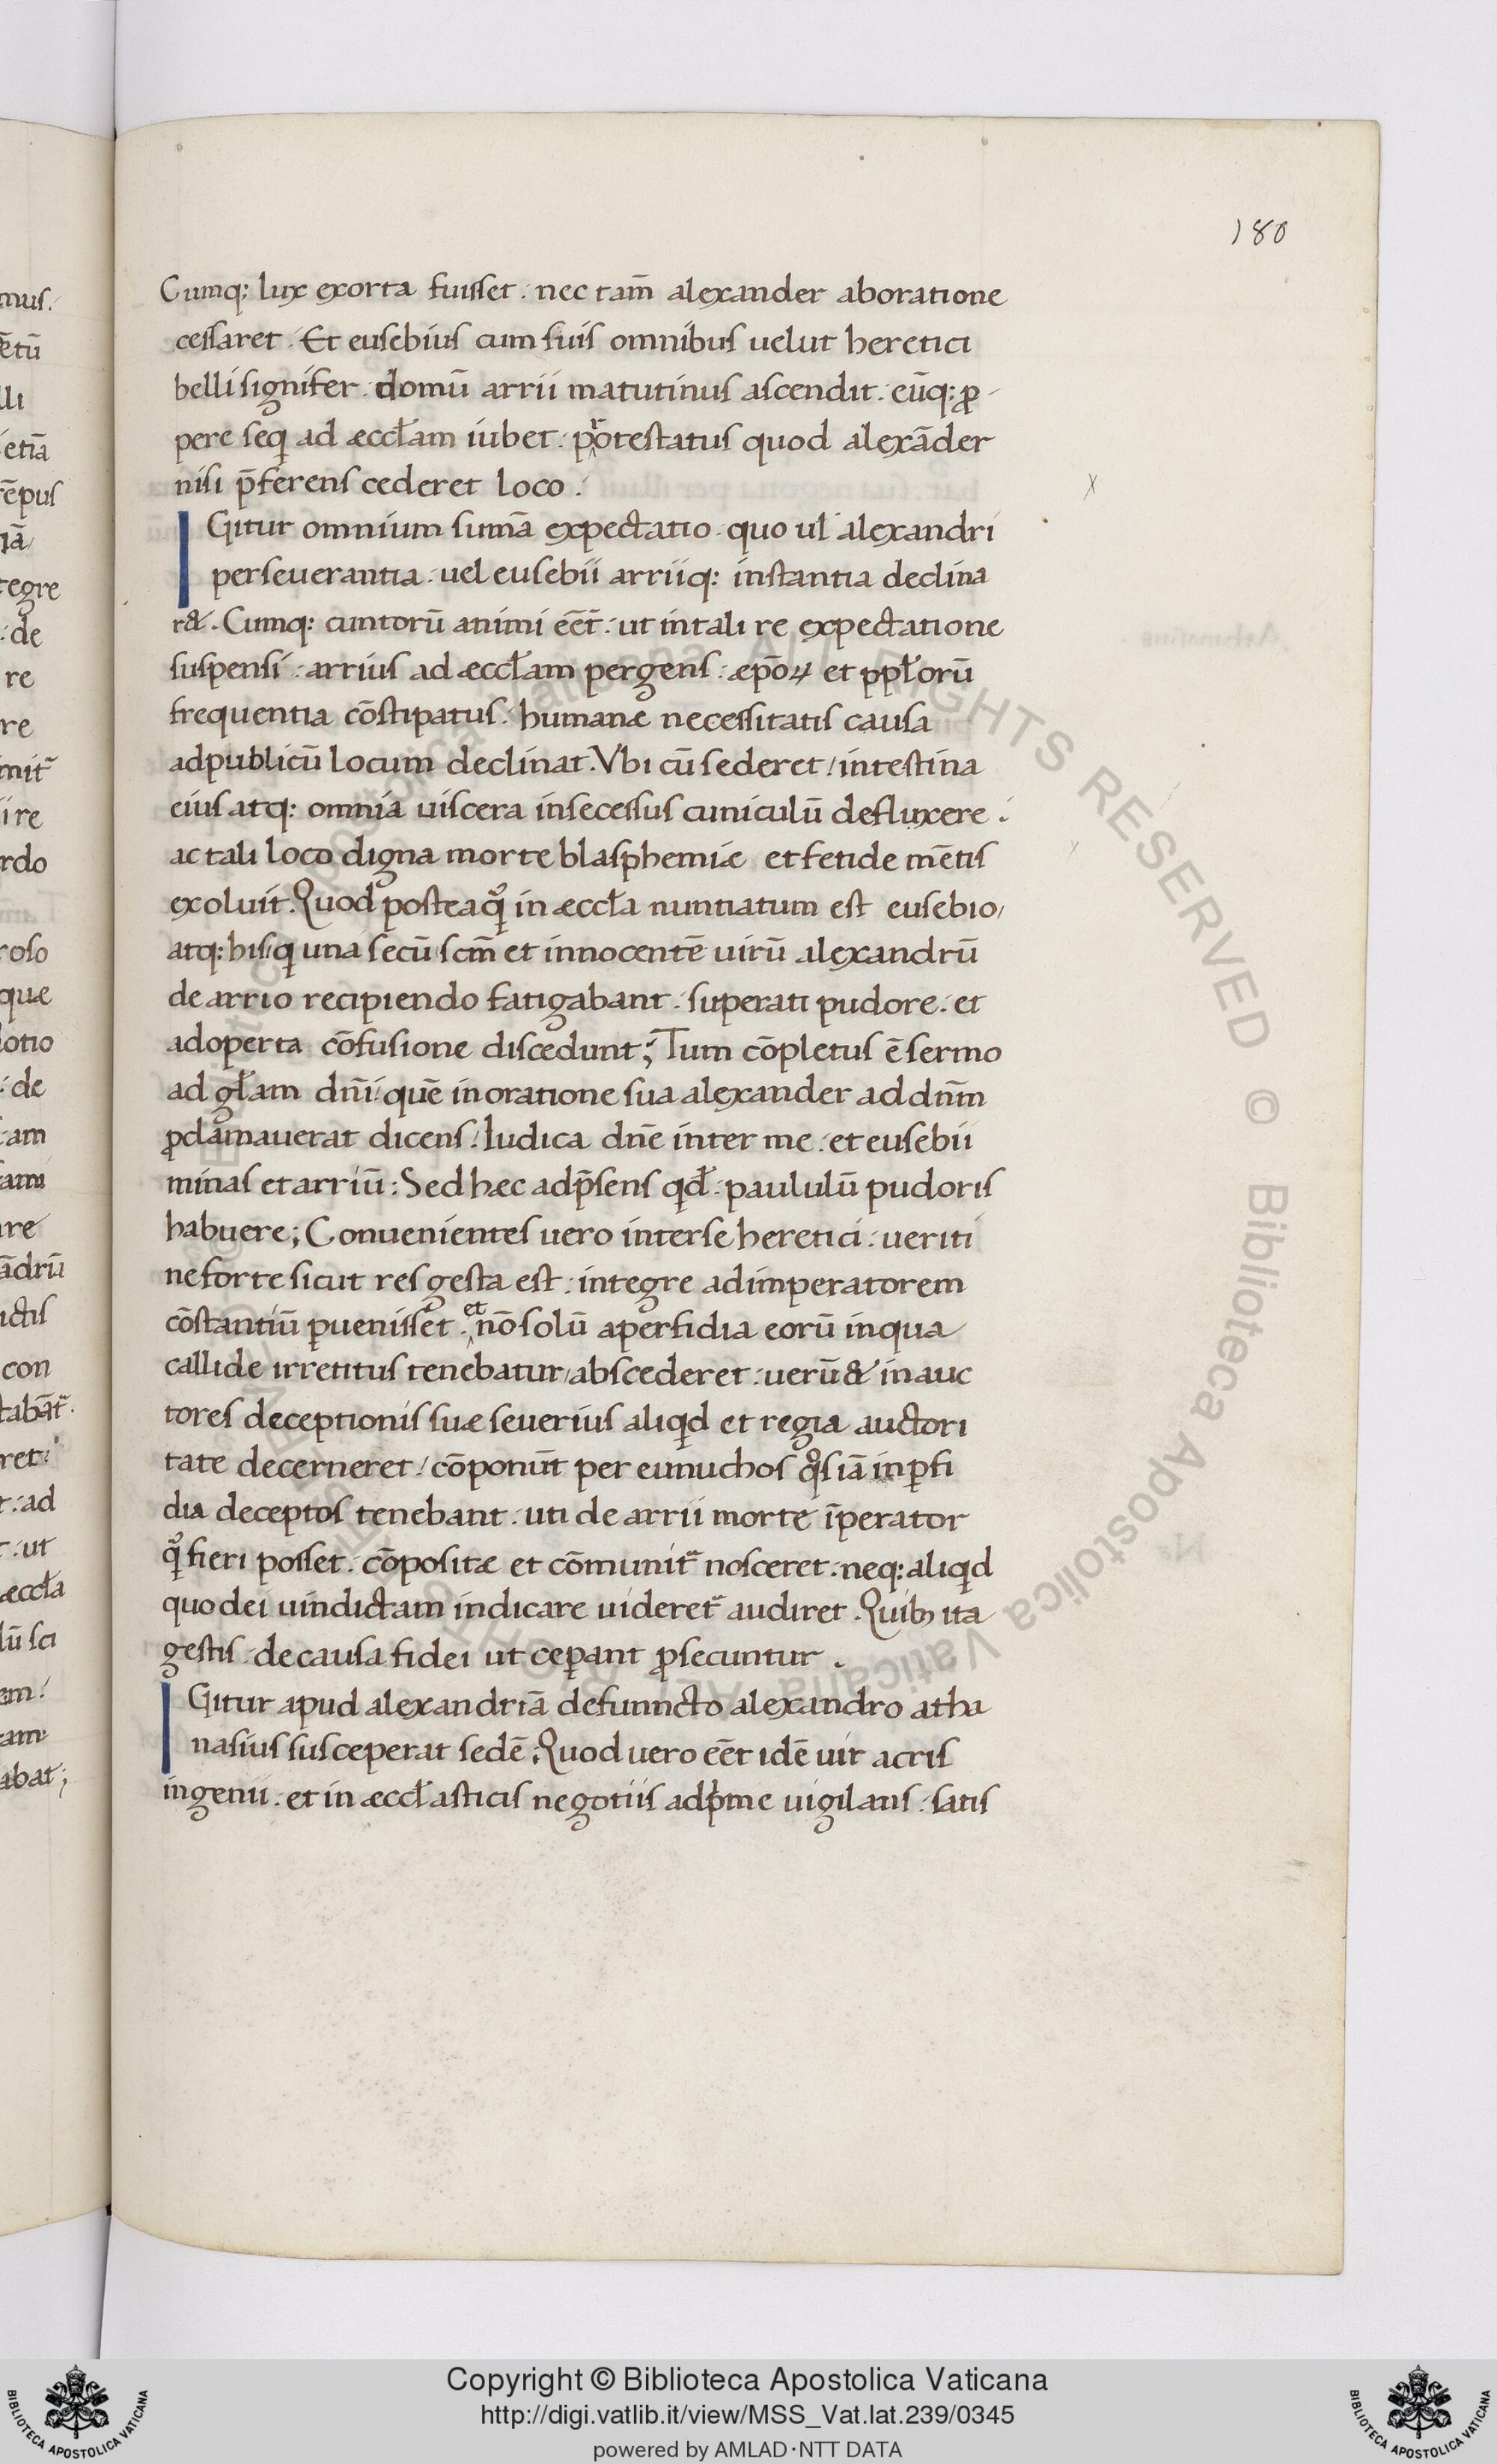 180
Cumq: lux exorta fuisset. nec tam̄ alexander aboratione
cessaret. Et eusebius cum suis omnibus uelut heretici
belli signifer. domū arrii matutinus ascendit. eūq: ꝓ
pere seq ad æccłam iubet. protestatus quod alexāder
nisi p̄ferens cederet loco.
IGitur omnium sum̄a expectatio. quo ul alexandri
perseuerantia. uel eusebii arriiq: instantia declina
r&. Cumq: cuntorū animi eēt̄. ut intali re expectatione
suspensi. arrius ad æccłam pergens. æpōꝝ et ppłorū
frequentia cōstipatus. humanæ necessitatis causa
adpublicū locum declinat. Vbi cū sederet / intestina
eius atq: omnia uiscera insecessus cuniculū defluxere.
ac tali loco digna morte blasphemiæ et fetide mētis
exoluit. Quod posteaqͣ in æccła nuntiatum est eusebio,
atq: his q una secū scm̄ et innocentē uirū alexandrū
de arrio recipiendo fatigabant. superati pudore. et
adoperta cōfusione discedunt; Tum cōpletus ē sermo
ad głam dn̄i quē in oratione sua alexander ad dn̄m
ꝓclamauerat dicens. Iudica dn̄e inter me. et eusebii
minas et arriū: Sed hæc adp̄sens qd̄. paululū pudoris
habuere; Conuenientes uero interse heretici. ueriti
ne forte sicut res gesta est. integre adimperatorem
cōstantiū ꝑuenisset. et nō solū aperfidia eorū inqua
callide irretitus tenebatur, abscederet. uerū & in auc
tores deceptionis suæ seuerius aliqd et regia auctori
tate decerneret / cōponūt per eunuchos qͦs iā in ꝑfi
dia deceptos tenebant. uti de arrii morte īperator
qͣ fieri posset. cōpositæ et cōmunit̄ nosceret. neq: aliqd
quo dei uindictam indicare uideret̄ audiret. Quibꝫ ita
gestis. de causa fidei ut ceꝑant ꝓsecuntur.
IGitur apud alexandriā defuncto alexandro atha
nasius susceperat sedē; Quod uero eēt idē uir acris
ingenii. et in æccłasticis negotiis adpͥme uigilans. satis
Copyright © Biblioteca Apostolica Vaticana
http://digi.vatlib.it/view/MSS_Vat.lat.239/0345
powered by AMLAD·NTT DATA